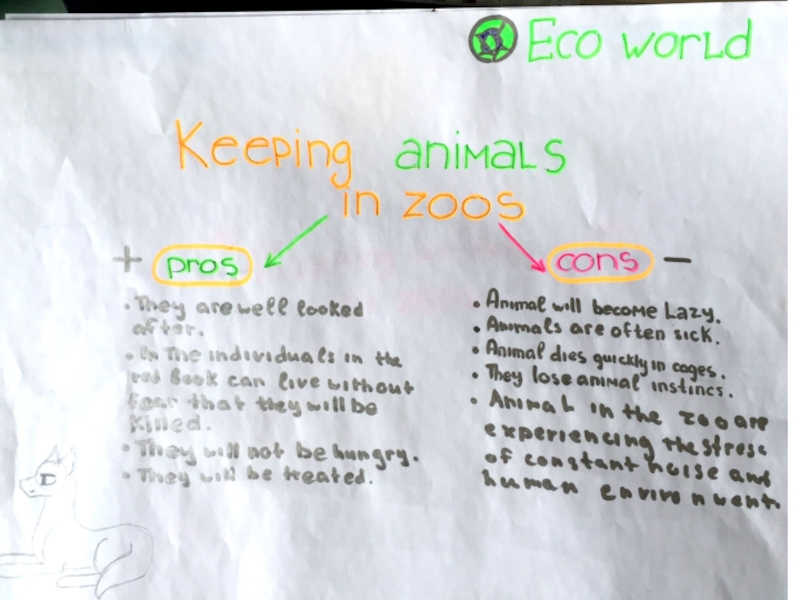 Eco world
Keeping animals
in zoos
+ pros
cons –
• They are well looked
after.
• In the individuals in the
red book can live without
fear that they will be
killed.
• They will not be hungry.
• They will be treated.
• Animal will become Lazy.
• Animals are often sick.
• Animal dies quickly in cages.
• They lose animal instincs.
• Animal in the zoo are
experiencing the stress
of constant noise and
human environment.